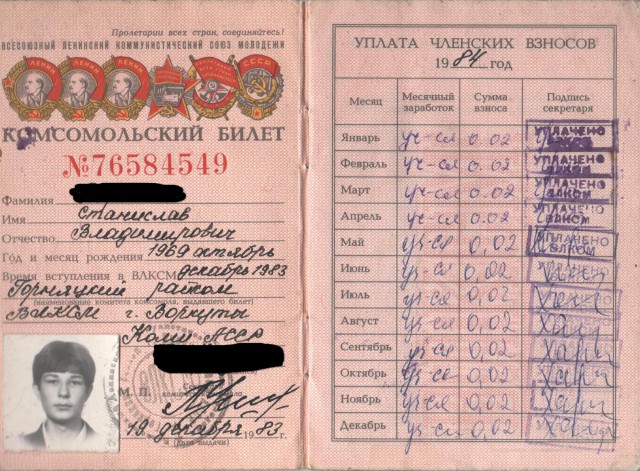 Пролетарии всех стран, соединяйтесь!
ВСЕСОЮЗНЫЙ ЛЕНИНСКИЙ КОММУНИСТИЧЕСКИЙ СОЮЗ МОЛОДЕЖИ
ЛЕНИН ЛЕНИН ЛЕНИН СССР
КОМСОМОЛЬСКИЙ БИЛЕТ
№76584549
Фамилия
Имя Станислав
Отчество Владимирович
Год и месяц рождения 1969 октябрь
Время вступления в ВЛКСМ декабрь 1983
Горняцкий райком
(наименование комитета комсомола, выдавшего билет)
ВЛКСМ г. Воркуты
Коми АССР
М. П.
19 декабря 1983 г.
(Дата выдачи)
УПЛАТА ЧЛЕНСКИХ ВЗНОСОВ
1984 год
Месяц Месячный заработок Сумма взноса Подпись секретаря
Январь уч-ся 0.02 УПЛАЧЕНО ВЛКСМ
Февраль уч-ся 0.02 УПЛАЧЕНО ВЛКСМ
Март уч-ся 0.02 УПЛАЧЕНО ВЛКСМ
Апрель уч-ся 0.02 УПЛАЧЕНО ВЛКСМ
Май уч-ся 0,02 УПЛАЧЕНО ВЛКСМ
Июнь уч-ся 0,02
Июль уч-ся 0,02
Август уч-ся 0,02
Сентябрь уч-ся 0,02
Октябрь уч-ся 0,02
Ноябрь уч-ся 0,02
Декабрь уч-ся 0,02